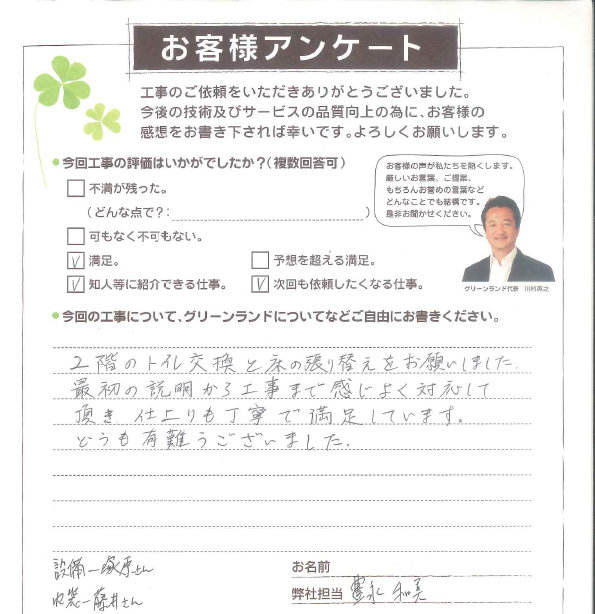 お客様アンケート
工事のご依頼をいただきありがとうございました。
今後の技術及びサービスの品質向上の為に、お客様の
感想をお書き下されば幸いです。よろしくお願いします。
●今回工事の評価はいかがでしたか？（複数回答可）
不満が残った。
（どんな点で？：　　　）
可もなく不可もない。
満足。
予想を超える満足。
知人等に紹介できる仕事。
次回も依頼したくなる仕事。
お客様の声が私たちを熱くします。
厳しいお言葉、ご提案、
もちろんお誉めの言葉など
どんなことでも結構です。
是非お聞かせください。
グリーンランド代表　川村英之
●今回の工事について、グリーンランドについてなどご自由にお書きください。
2階のトイレ交換と床の張り替えをお願いしました。
最初の説明から工事まで感じよく対応して
頂き 仕上りも丁寧で満足しています。
どうも有難うございました。
設備ー塚原さん
内窓ー藤井さん
お名前
弊社担当 豊永 和美